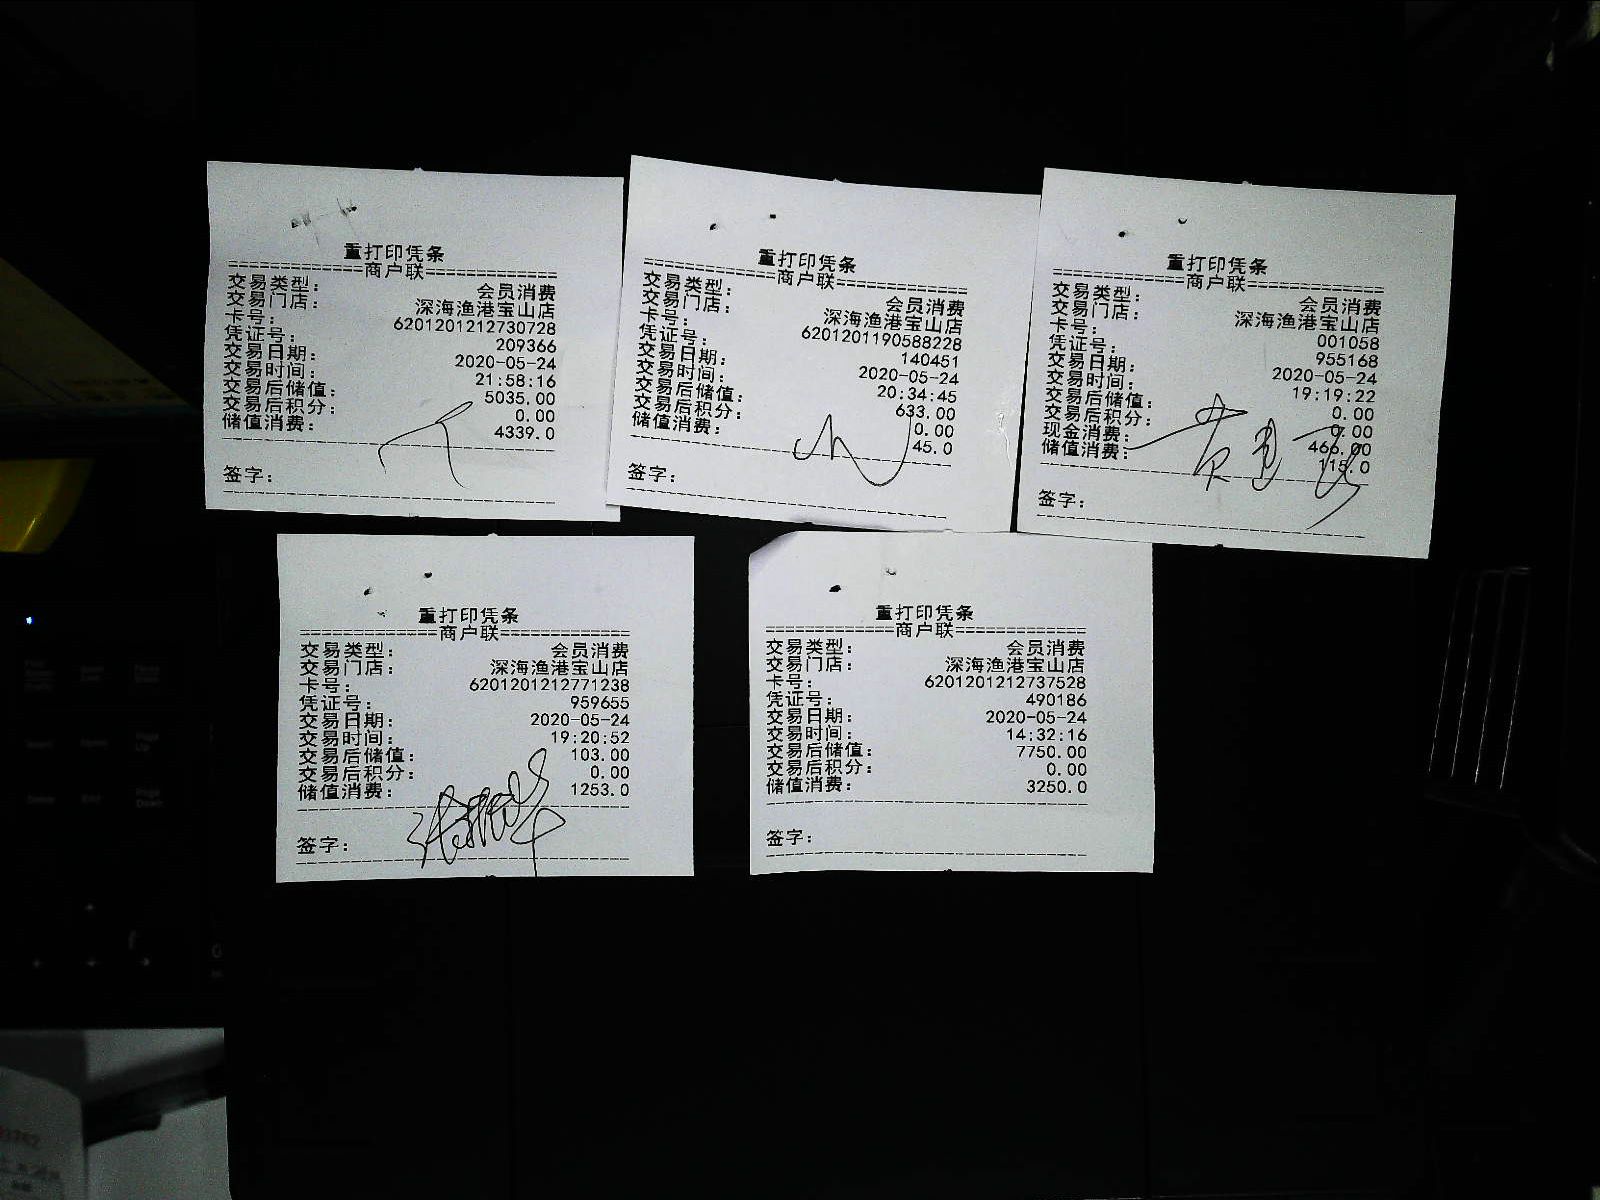 重打印凭条
=============商户联=============
交易类型： 会员消费
交易门店： 深海渔港宝山店
卡号： 6201201212730728
凭证号： 209366
交易日期： 2020-05-24
交易时间： 21:58:16
交易后储值： 5035.00
交易后积分： 0.00
储值消费： 4339.0
签字：
重打印凭条
=============商户联=============
交易类型： 会员消费
交易门店： 深海渔港宝山店
卡号： 6201201190588228
凭证号： 140451
交易日期： 2020-05-24
交易时间： 20:34:45
交易后储值： 633.00
交易后积分： 0.00
储值消费： 45.0
签字：
重打印凭条
=============商户联=============
交易类型： 会员消费
交易门店： 深海渔港宝山店
卡号： 001058
凭证号： 955168
交易日期： 2020-05-24
交易时间： 19:19:22
交易后储值： 0.00
交易后积分： 0.00
现金消费： 466.00
储值消费： 115.0
签字：
重打印凭条
=============商户联=============
交易类型： 会员消费
交易门店： 深海渔港宝山店
卡号： 6201201212771238
凭证号： 959655
交易日期： 2020-05-24
交易时间： 19:20:52
交易后储值： 103.00
交易后积分： 0.00
储值消费： 1253.0
签字：
重打印凭条
=============商户联=============
交易类型： 会员消费
交易门店： 深海渔港宝山店
卡号： 6201201212737528
凭证号： 490186
交易日期： 2020-05-24
交易时间： 14:32:16
交易后储值： 7750.00
交易后积分： 0.00
储值消费： 3250.0
签字：